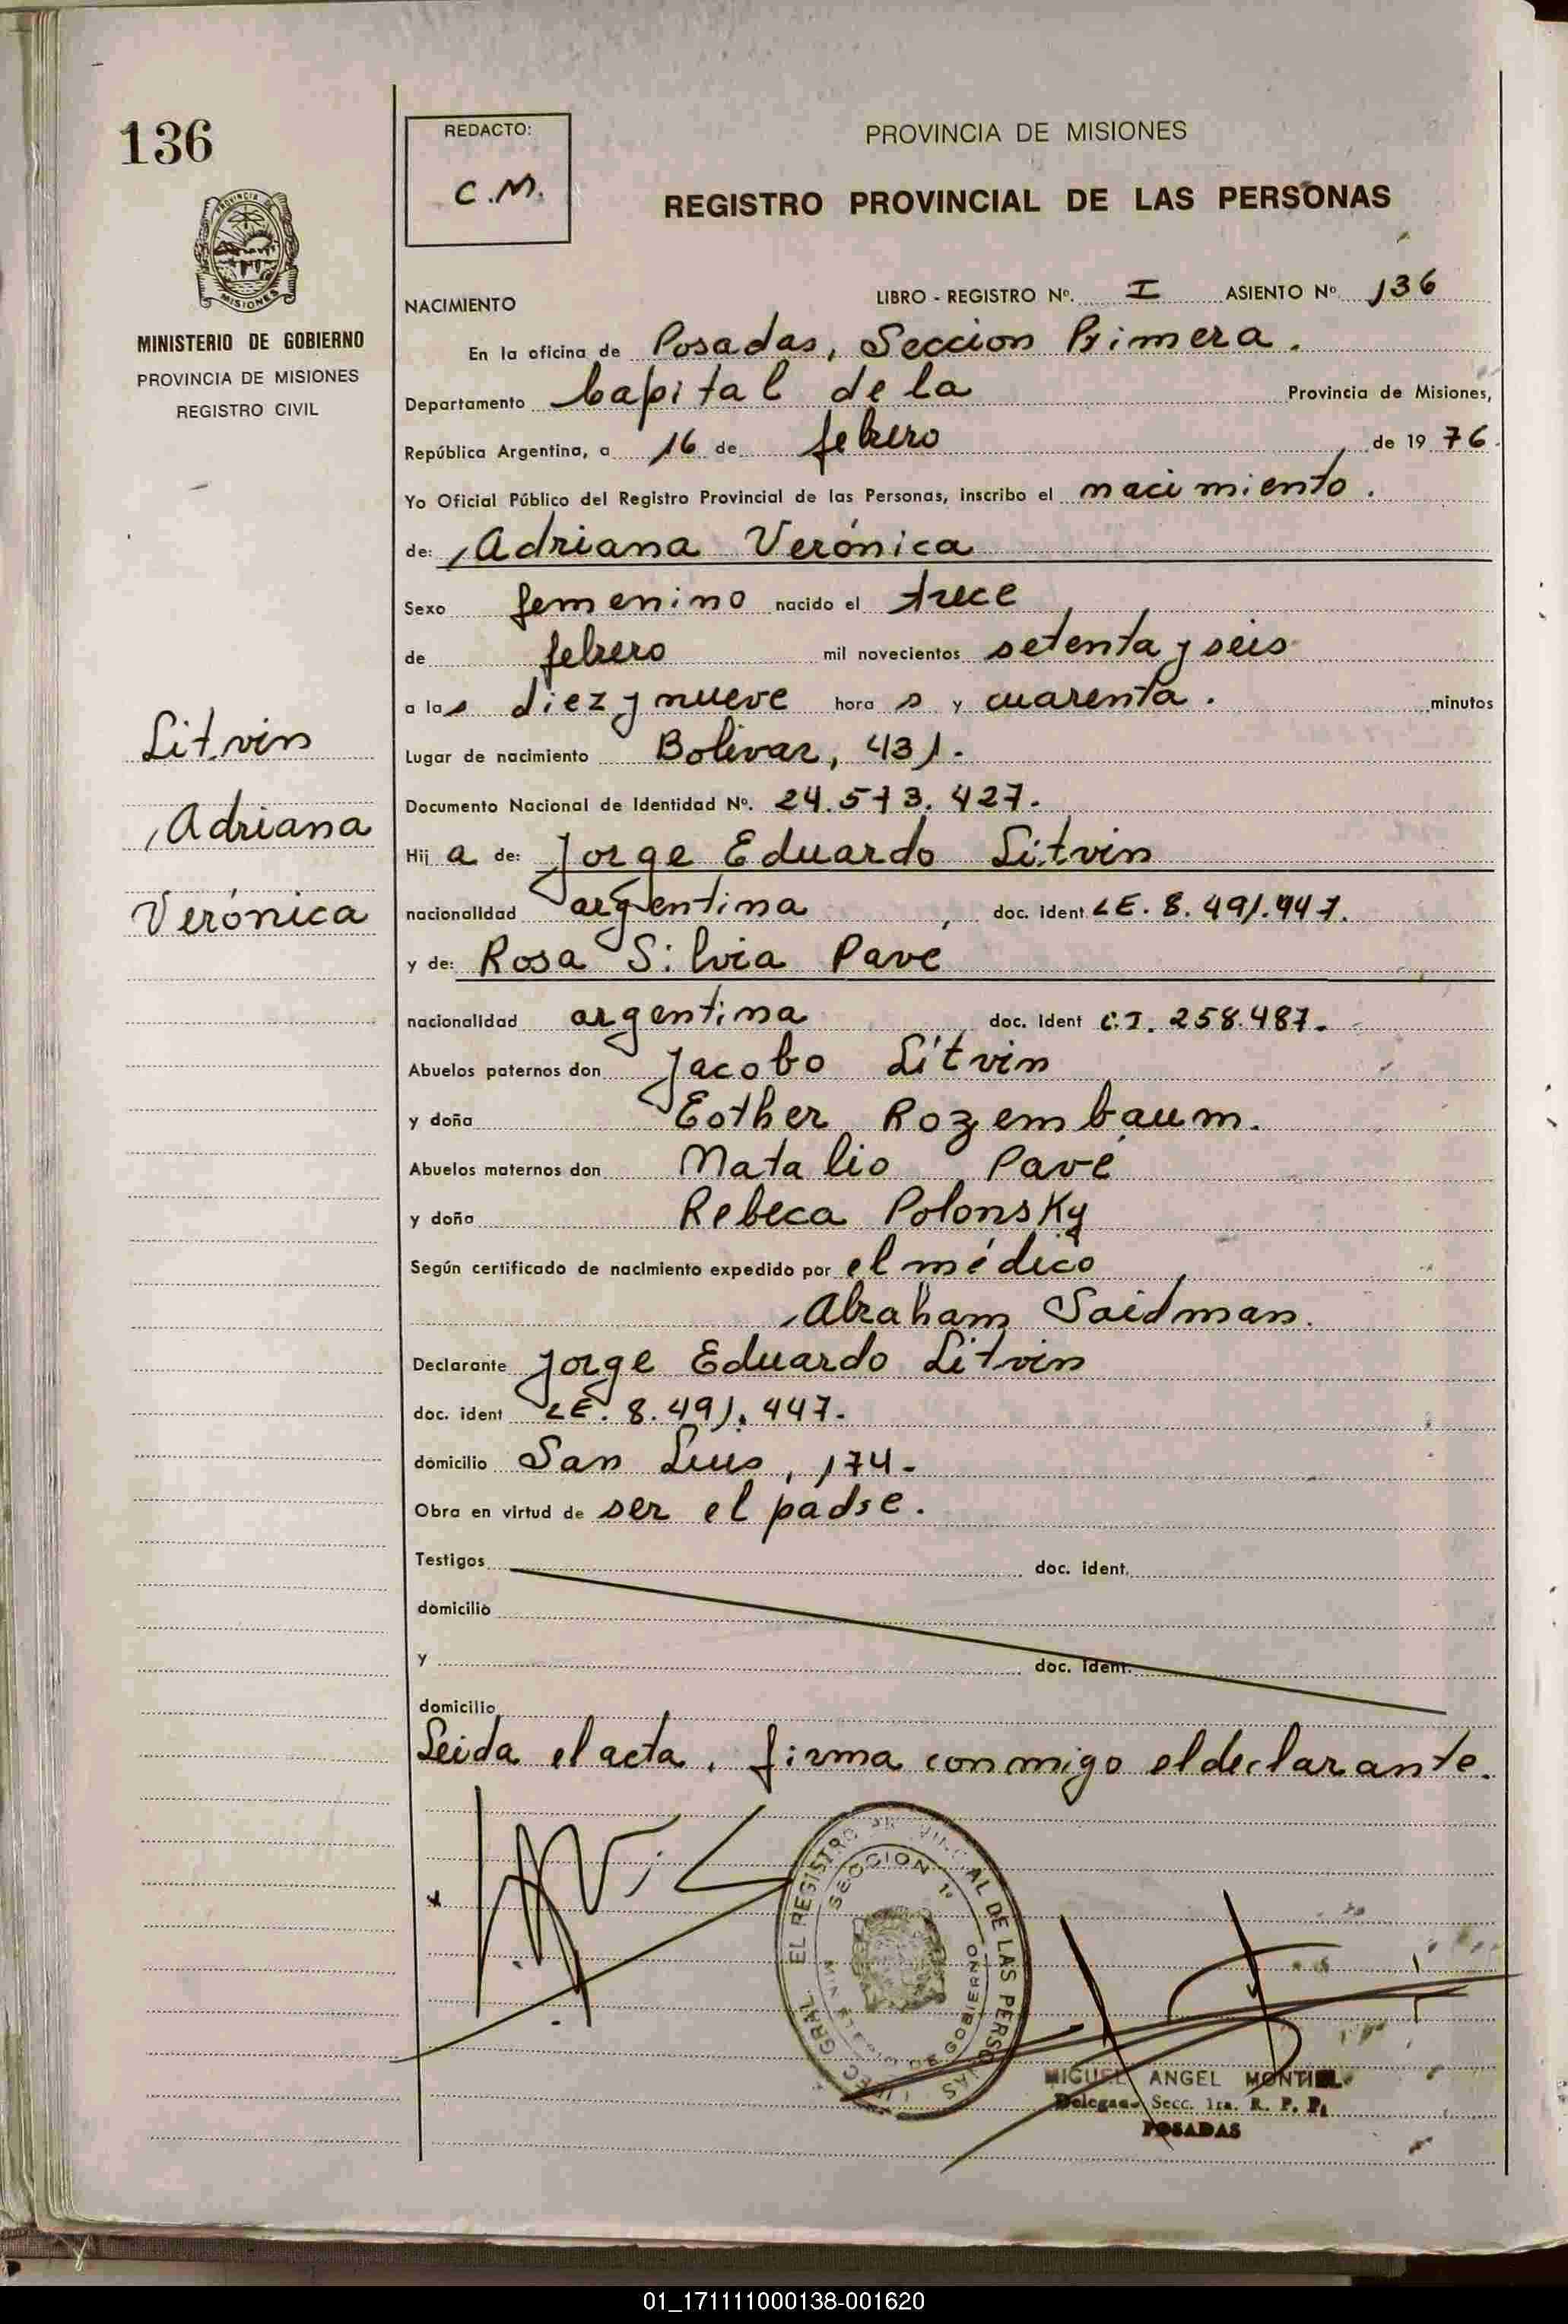 136
REDACTO:
C.M.
PROVINCIA DE MISIONES
REGISTRO PROVINCIAL DE LAS PERSONAS
MISIONES
MINISTERIO DE GOBIERNO
PROVINCIA DE MISIONES
REGISTRO CIVIL
Litvin
Adriana
Verónica
NACIMIENTO
LIBRO - REGISTRO Nº. I ASIENTO Nº 136
En la oficina de Posadas, Seccion Primera.
Departamento Capital de la Provincia de Misiones,
República Argentina, a 16 de febrero de 19 76.
Yo Oficial Público del Registro Provincial de las Personas, inscribo el nacimiento.
de: Adriana Verónica
Sexo femenino nacido el trece
de febrero mil novecientos setenta y seis
a las diez y nueve hora s y cuarenta. minutos
Lugar de nacimiento Bolivar, 431.-
Documento Nacional de Identidad Nº. 24.573.427.-
Hij a de: Jorge Eduardo Litvin
nacionalidad argentina, doc. ident LE. 8.491.447.
y de: Rosa Silvia Pavé
nacionalidad argentina doc. Ident C.I. 258.487.-
Abuelos paternos don Jacobo Litvin
y doña Esther Rozembaum.
Abuelos maternos don Matalio Pavé
y doña Rebeca Polonsky
Según certificado de nacimiento expedido por el médico
Abraham Saidman.
Declarante Jorge Eduardo Litvin
doc. ident LE. 8.491.447.-
domicilio San Luis, 174.-
Obra en virtud de ser el padre.
Testigos doc. ident.
domicilio
y doc. ident.
domicilio
Leida el acta, firma conmigo el declarante.
EL REGISTRO PROVINCIAL DE LAS PERSONAS
SECCION 1ª
MINISTERIO DE GOBIERNO
MIGUEL ANGEL MONTIEL
Delegado Secc. 1ra. R. P. P.
POSADAS
01_171111000138-001620